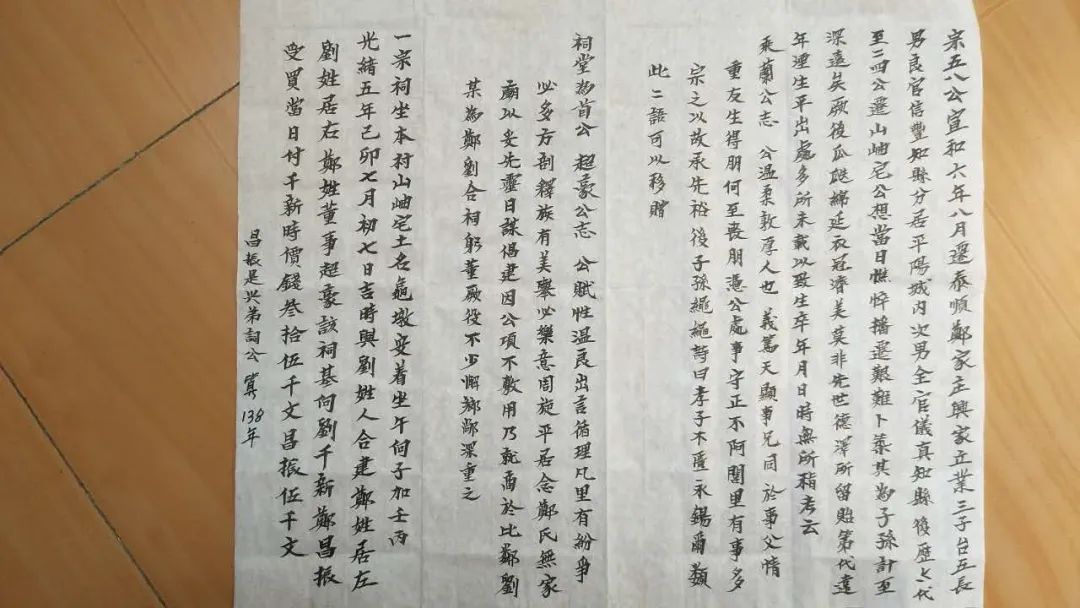 宗五八公宣和六年八月遷泰順鄭家主興家立業三子台五長
男良官信豐知縣分居平陽城内次男全官儀真知縣後歷七代
至二四公遷山岫宅公想當日憔悴播遷艱難卜築其為子孫計至
深遠矣厥後瓜瓞綿延衣冠濟美莫非先世德澤所留貽第代遠
年湮生平出處多所未載以致生卒年月日時無所稽考云
乘蘭公志 公温柔敦厚人也 義篤天顯事兄同於事父情
重友生得朋何至喪朋憑公處事守正不阿閭里有事多
宗之以故承先裕後子孫繩繩詩曰孝子不匱永錫爾類
此二語可以移贈
祠堂為首公 超豪公志 公賦性温良出言循理凡里有紛爭
必多方剖釋族有美舉必樂意周旋平居念鄭氏無家
廟以妥先靈日謀倡建因公項不敷用乃就商於比鄰劉
某為鄭劉合祠躬董厥役不少懈鄉鄰深重之
一宗祠坐本村山岫宅土名龜墩安着坐午向子加壬丙
光緒五年己卯七月初七日吉時與劉姓人合建鄭姓居左
劉姓居右鄭姓董事超豪該祠基向劉千新鄭昌振
受買當日付千新時價錢叁拾伍千文昌振伍千文
昌振是兴弟詞公 138年